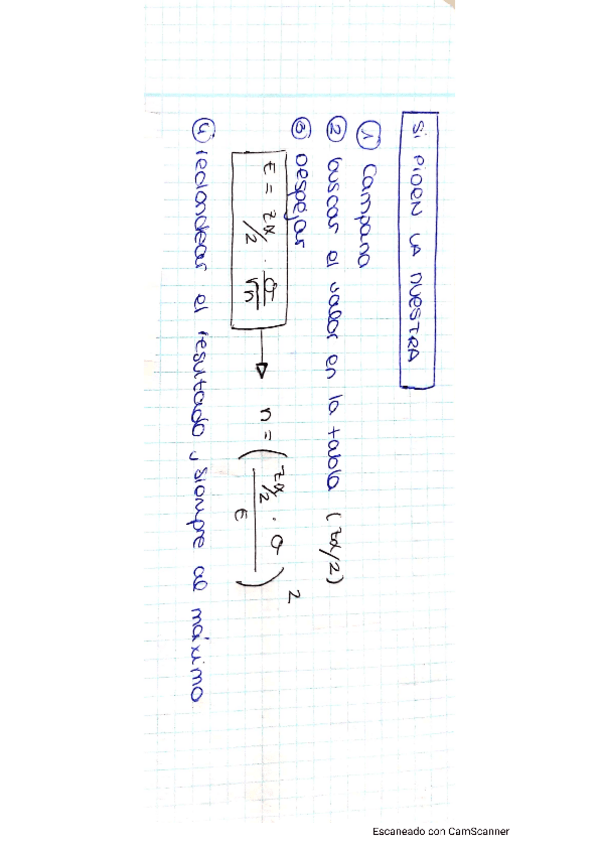 Si PIDEN LA MUESTRA
① Campana
② buscar el valor en la tabla (zα/2)
③ Despejar
E = zα/2 · σ/√n → n = (zα/2 · σ / E)²
④ redondear el resultado, siempre al máximo
Escaneado con CamScanner